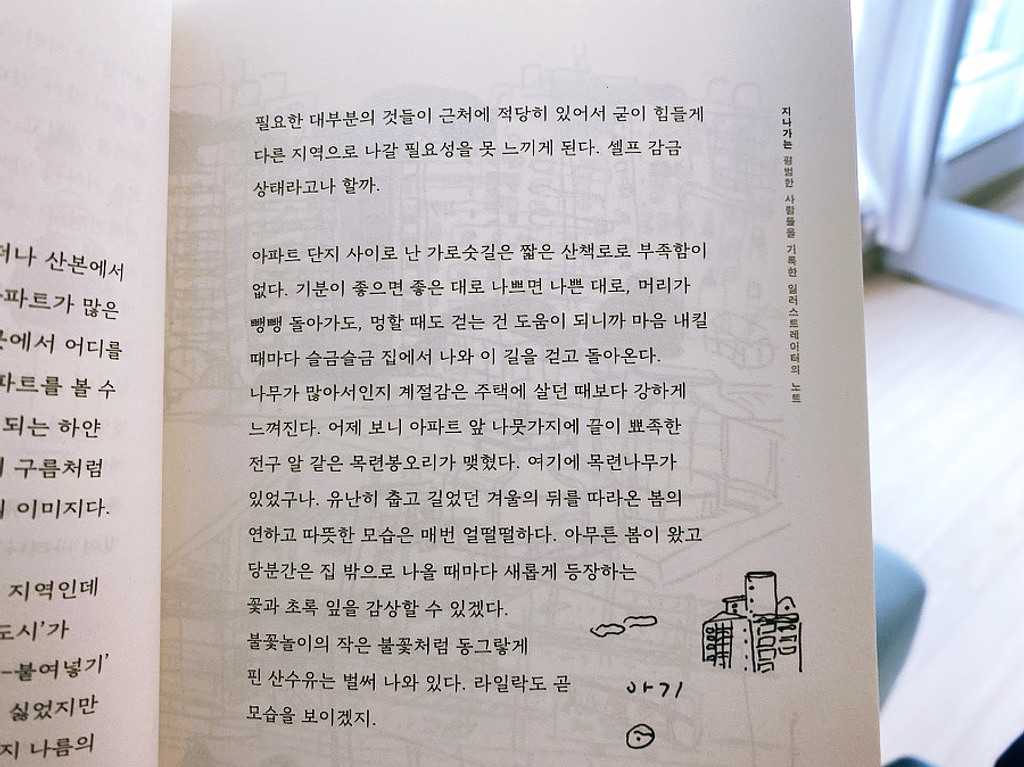 산본에서
많은
어디를
볼 수
되는 하얀
구름처럼
이미지다.
지역인데
도시'가
-붙여넣기'
싫었지만
나름의
필요한 대부분의 것들이 근처에 적당히 있어서 굳이 힘들게
다른 지역으로 나갈 필요성을 못 느끼게 된다. 셀프 감금
상태라고나 할까.
아파트 단지 사이로 난 가로숫길은 짧은 산책로로 부족함이
없다. 기분이 좋으면 좋은 대로 나쁘면 나쁜 대로, 머리가
뺑뺑 돌아가도, 멍할 때도 걷는 건 도움이 되니까 마음 내킬
때마다 슬금슬금 집에서 나와 이 길을 걷고 돌아온다.
나무가 많아서인지 계절감은 주택에 살던 때보다 강하게
느껴진다. 어제 보니 아파트 앞 나뭇가지에 끝이 뾰족한
전구 알 같은 목련봉오리가 맺혔다. 여기에 목련나무가
있었구나. 유난히 춥고 길었던 겨울의 뒤를 따라온 봄의
연하고 따뜻한 모습은 매번 얼떨떨하다. 아무튼 봄이 왔고
당분간은 집 밖으로 나올 때마다 새롭게 등장하는
꽃과 초록 잎을 감상할 수 있겠다.
불꽃놀이의 작은 불꽃처럼 동그랗게
핀 산수유는 벌써 나와 있다. 라일락도 곧
모습을 보이겠지.
아기
지나가는 평범한 사람들을 기록한 일러스트레이터의 노트